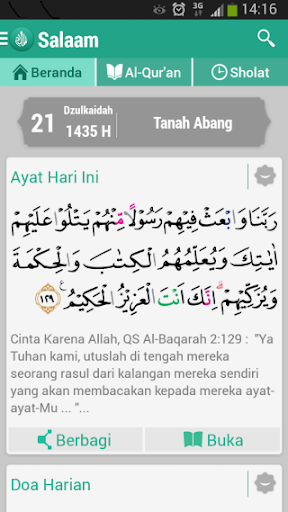 3G
14:16
Salaam
Beranda
Al-Qur'an
Sholat
21
Dzulkaidah
1435 H
Tanah Abang
Ayat Hari Ini
رَبَّنَا وَابْعَثْ فِيْهِمْ رَسُوْلًا مِّنْهُمْ يَتْلُوْا عَلَيْهِمْ
اٰيٰتِكَ وَيُعَلِّمُهُمُ الْكِتٰبَ وَالْحِكْمَةَ
وَيُزَكِّيْهِمْ ۗ اِنَّكَ اَنْتَ الْعَزِيْزُ الْحَكِيْمُ ١٢٩
Cinta Karena Allah, QS Al-Baqarah 2:129 : "Ya
Tuhan kami, utuslah di tengah mereka
seorang rasul dari kalangan mereka sendiri
yang akan membacakan kepada mereka ayat-
ayat-Mu ... "..."
Berbagi
Buka
Doa Harian